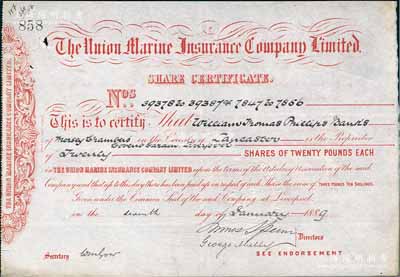 858
The Union Marine Insurance Company Limited.
SHARE CERTIFICATE.
Nos. 39378 to 39387 & 7847 to 7856
This is to certify That William Thomas Phillips Bands
of Mersey Chambers in the County of Lancaster is the Proprietor
Covent Garden Liverpool
of Twenty SHARES OF TWENTY POUNDS EACH
IN THE UNION MARINE INSURANCE COMPANY LIMITED upon the terms of the Articles of Association of the said
Company and that up to this day there has been paid up in respect of each Share the sum of THREE POUNDS TEN SHILLINGS.
Given under the Common Seal of the said Company at Liverpool
in the day of January 1889
Directors
Secretary
SEE ENDORSEMENT
THE UNION MARINE INSURANCE COMPANY LIMITED